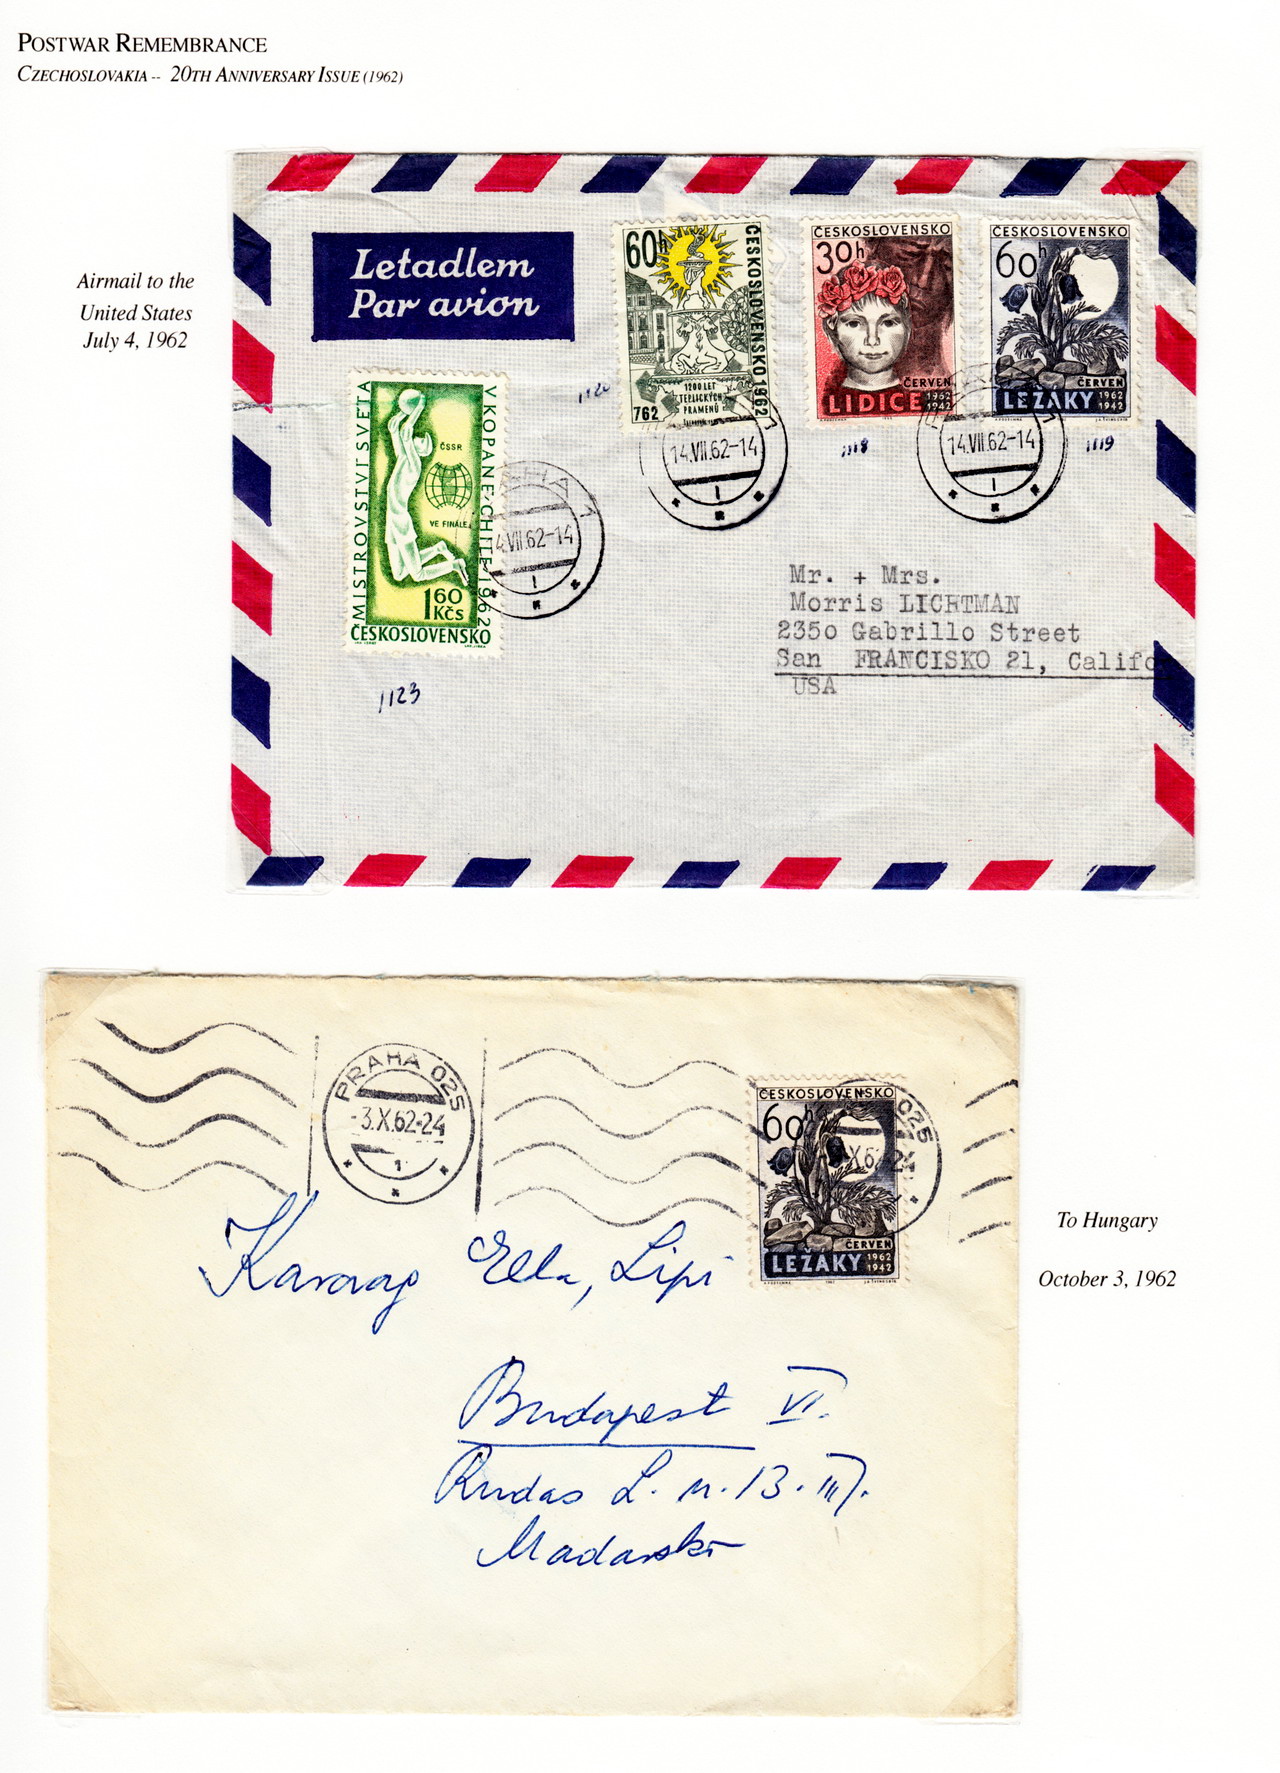 POSTWAR REMEMBRANCE
CZECHOSLOVAKIA -- 20TH ANNIVERSARY ISSUE (1962)
Airmail to the
United States
July 4, 1962
Letadlem
Par avion
60h
ČESKOSLOVENSKO 1962
1200 LET
TEPLICKÝCH
PRAMENŮ
762
ČESKOSLOVENSKO
30h
ČERVEN
LIDICE 1962
1942
ČESKOSLOVENSKO
60h
ČERVEN
LEŽÁKY 1962
1942
1120
1118
1119
14.VII.62-14
1
14.VII.62-14
1
MISTROVSTVÍ SVĚTA
V KOPANÉ·CHILE·1962
ČSSR
VE FINÁLE
1 60
KČS
ČESKOSLOVENSKO
PRAHA 1
14.VII.62-14
1
1123
Mr. + Mrs.
Morris LICHTMAN
2350 Gabrillo Street
San FRANCISKO 21, Califo
USA
PRAHA 025
-3.X.62-24
1
ČESKOSLOVENSKO
60h
ČERVEN
LEŽÁKY 1962
1942
025
Ella, Lipi
Budapest VI.
Rudas L. u. 13. III.
Madarsko
To Hungary
October 3, 1962